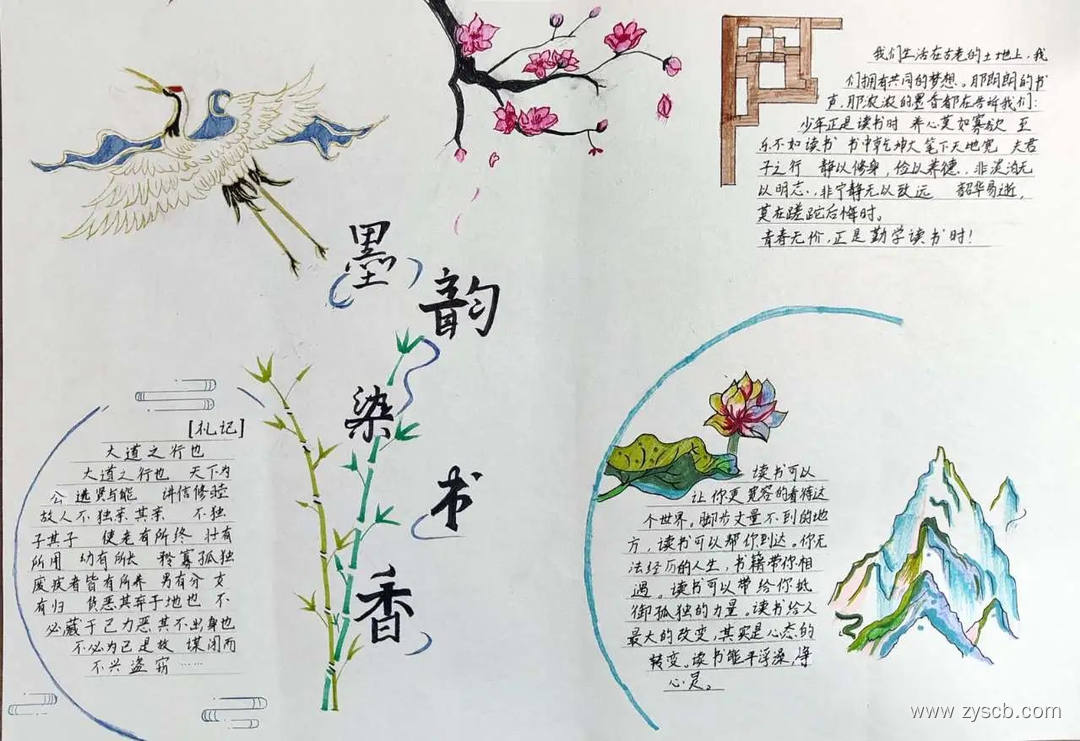 我们生活在古老的土地上,我
们拥有共同的梦想。那阴朗的书
声,那浓浓的墨香都在告诉我们:
少年正是读书时 养心莫如寡欲 至
乐不如读书 书中乾坤大 笔下天地宽 夫君
子之行 静以修身,俭以养德,非淡泊无
以明志,非宁静无以致远 韶华易逝,
莫在蹉跎后悔时。
青春无价,正是勤学读书时!
墨韵染书香
[礼记]
大道之行也
大道之行也 天下为
公 选贤与能 讲信修睦
故人不独亲其亲 不独
子其子 使老有所终 壮有
所用 幼有所长 矜寡孤独
废疾者皆有所养 男有分 女
有归 货恶其弃于地也 不
必藏于己力恶其不出身也
不必为己是故 谋闭而
不兴 盗 窃 ……
读书可以
让你更宽容的看待这
个世界。脚步丈量不到的地
方,读书可以帮你到达。你无
法经历的人生,书籍带你相
遇。读书可以带给你抵
御孤独的力量。读书给人
最大的改变,其实是心态的
转变。读书能平浮躁,净
心灵。
www.zyscb.com